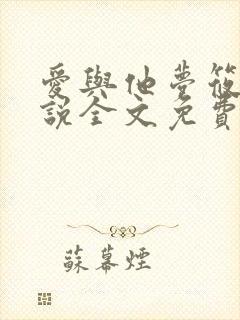 愛與他夢筱
說全文免費
蘇幕煙